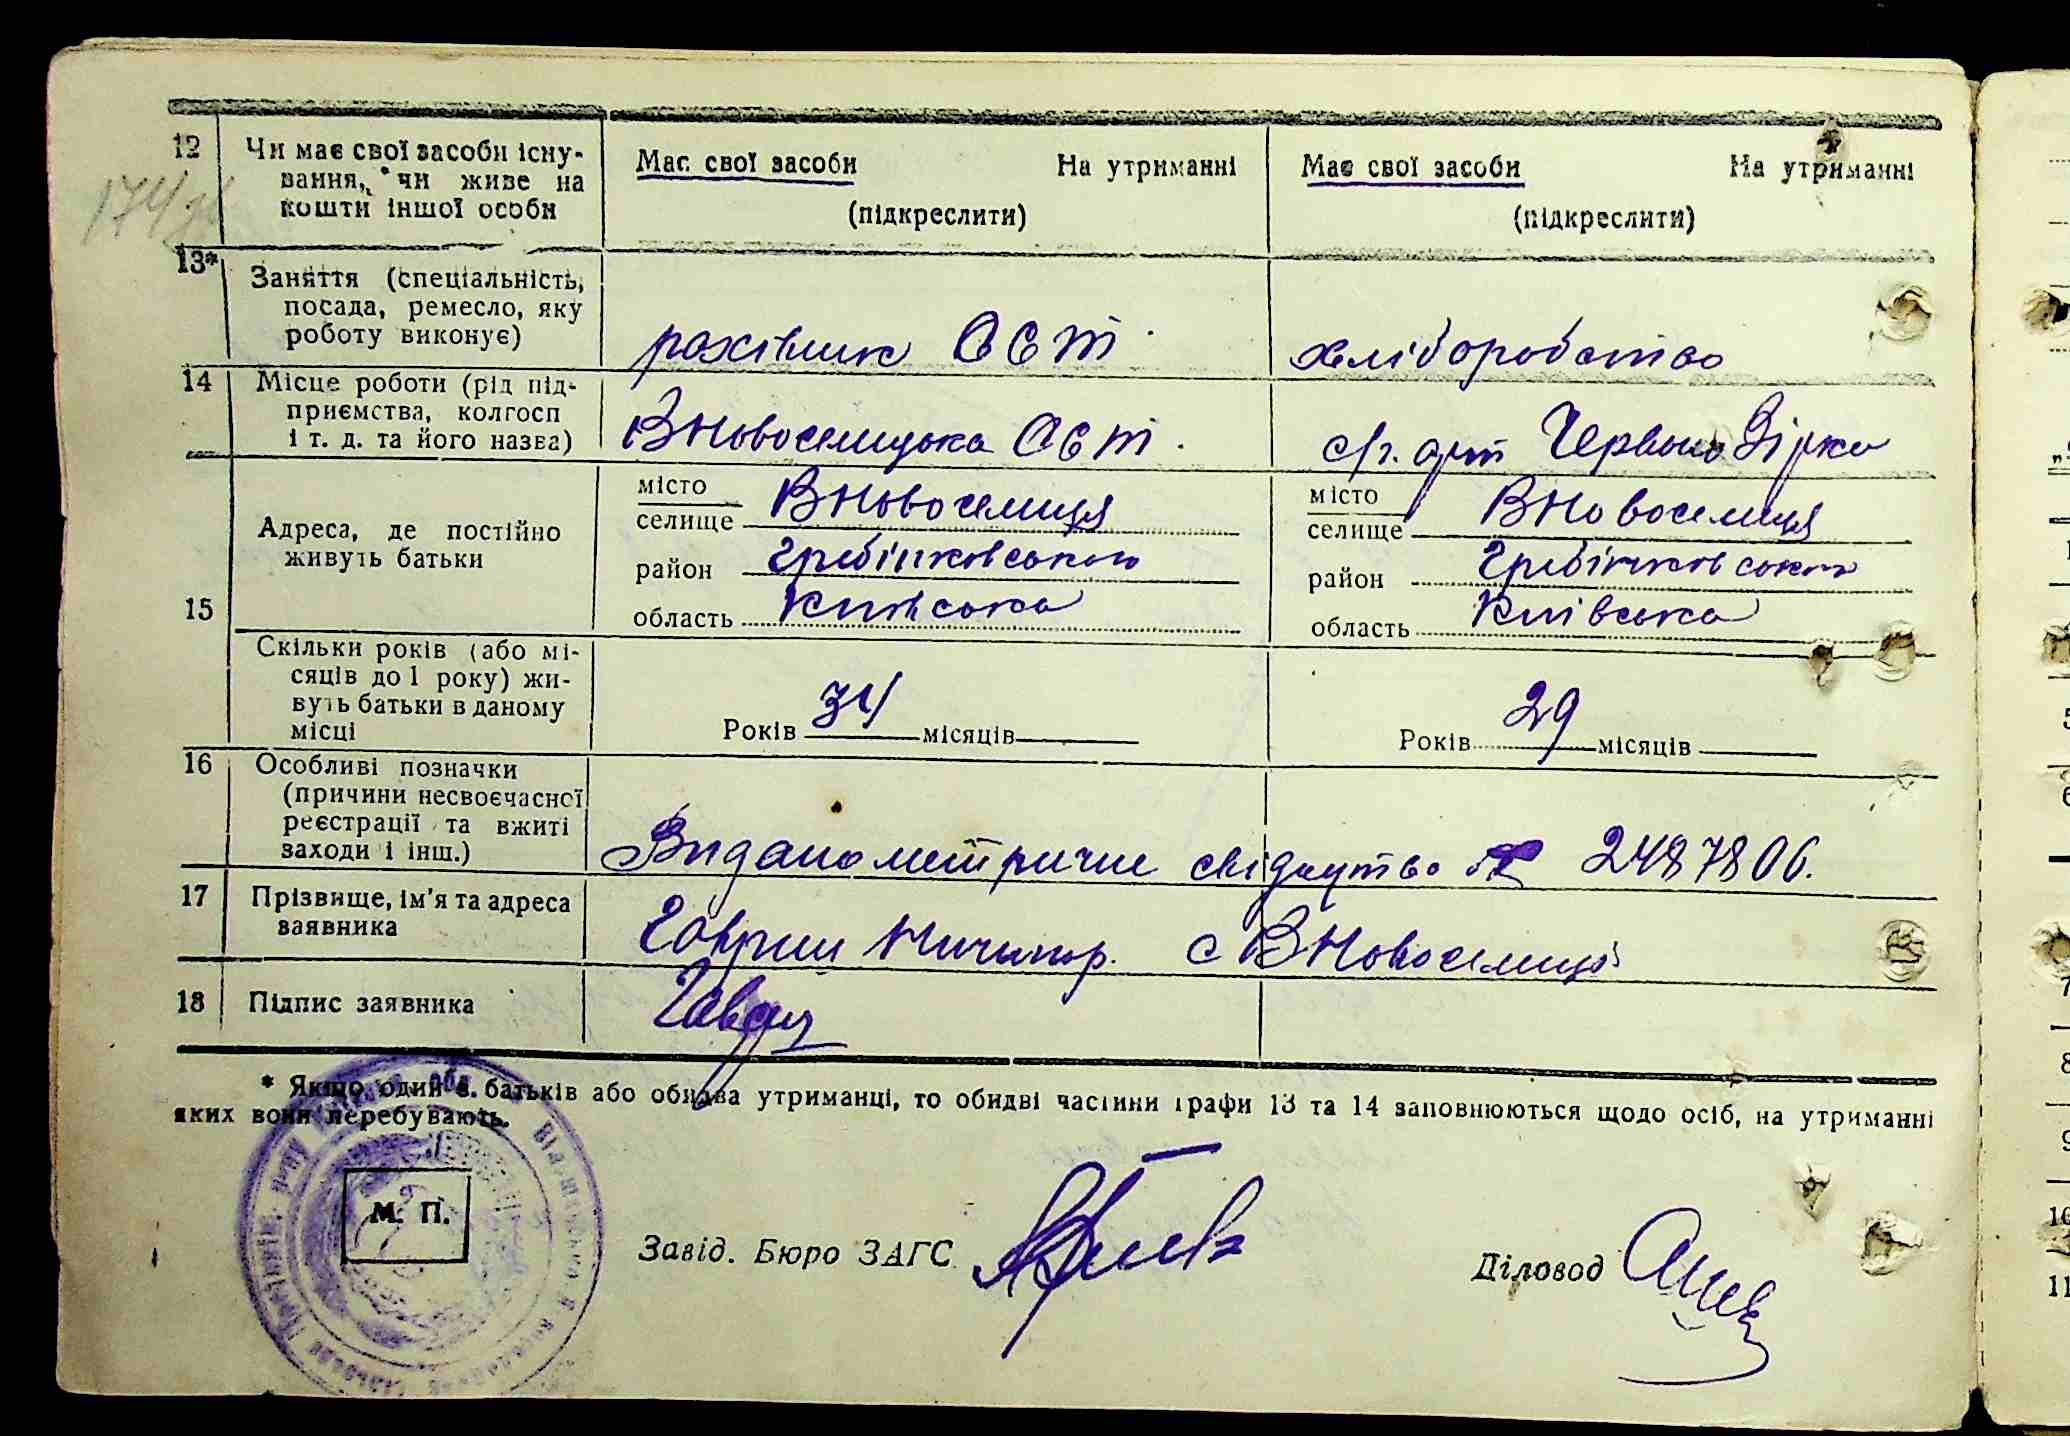 12 Чи має свої засоби існу-
вання, чи живе на
кошти іншої особи
Має свої засоби На утриманні
(підкреслити)
Має свої засоби На утриманні
(підкреслити)
13* Заняття (спеціальність,
посада, ремесло, яку
роботу виконує)
рахівник ССТ
хліборобство
14 Місце роботи (рід під-
приємства, колгосп
і т. д. та його назва)
ВНовоселицька ССТ.
с/г. арт Червона Зірка
15 Адреса, де постійно
живуть батьки
місто
селище ВНовоселиця
район Гребінковського
область Київська
місто
селище ВНовоселиця
район Гребінковського
область Київська
Скільки років (або мі-
сяців до 1 року) жи-
вуть батьки в даному
місці
Років 34 місяців
Років 29 місяців
16 Особливі позначки
(причини несвоєчасної
реєстрації та вжиті
заходи і інш.)
Видано метричне свідоцтво № 2487806.
17 Прізвище, ім'я та адреса
заявника
Гаврил Ничипор. с ВНовоселиця
18 Підпис заявника
* Якщо один з батьків або обидва утриманці, то обидві частини графи 13 та 14 заповнюються щодо осіб, на утриманні
яких вони перебувають.
М. П.
Завід. Бюро ЗАГС
Діловод